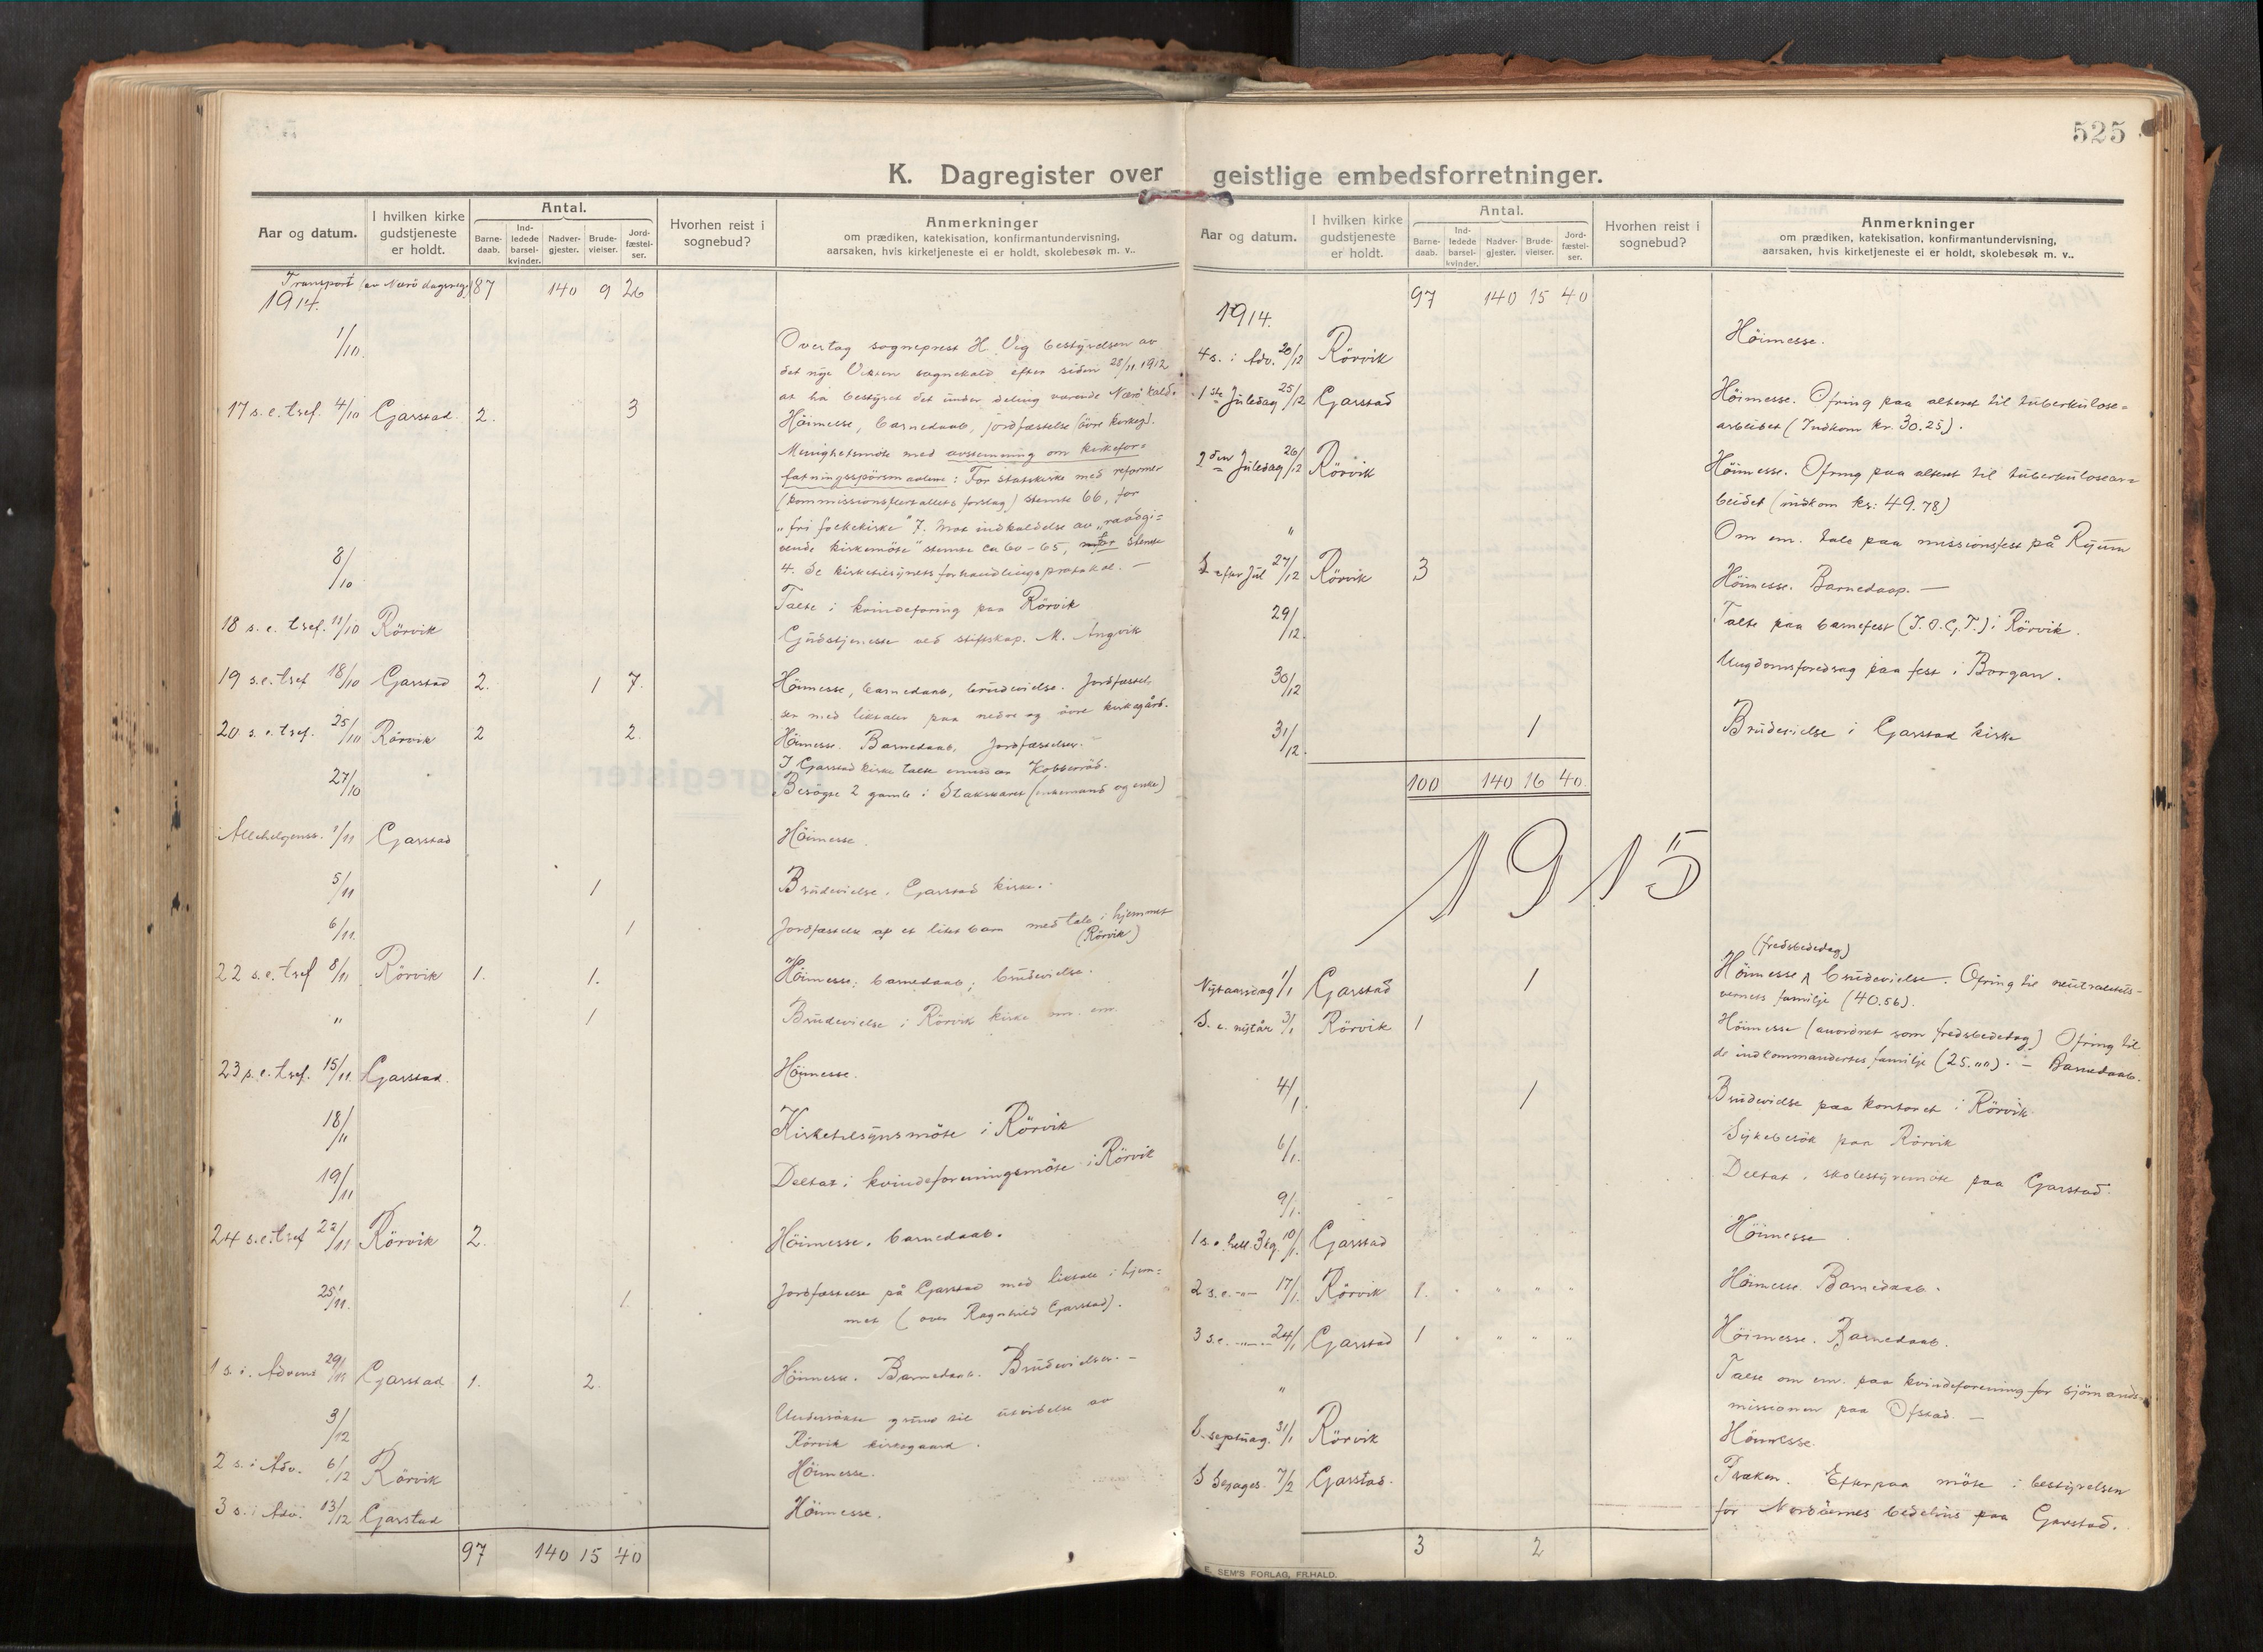 525
K. Dagregister over geistlige embedsforretninger.
Aar og datum.
I hvilken kirke gudstjeneste er holdt.
Antal.
Barne-daab.
Ind-ledede barsel-kvinder.
Nadver-gjester.
Brude-vielser.
Jord-fæstel-ser.
Hvorhen reist i sognebud?
Anmerkninger
om prædiken, katekisation, konfirmantundervisning,
aarsaken, hvis kirketjeneste ei er holdt, skolebesøk m. v..
Transport (av Nærö dagsreg.) 87 140 9 26
1914.
1/10. Overtog sogneprest H. Vig bestyrelsen av
det nye Vikten sognekald efter siden 28/11 1912
at ha bestyret det under deling værende Nærö kald.
17 s. e. tref. 4/10 Garstad 2. 3 Höimesse, barnedaab, jordfæstelse (övre kirkeg).
Menighetsmöte med avstemning om kirkefor=
fatningsspörsmaalene: For statskirke med reformer
(kommissionsflertallets forslag) stemte 66, for
"fri folkekirke" 7. Mot indkaldelse av "raadgi=
vende kirkemöte" stemte ca 60-65, for stemte
4. Se kirketilsynets forhandlingsprotokol. —
8/10 Talte i kvindeforing paa Rörvik
18 s. e. tref. 11/10 Rörvik Gudstjeneste ved stiftskap. M. Angvik
19 s. e. tref 18/10 Garstad 2. 1 7. Höimesse, barnedaab, brudevielse. Jordfæstel-
ser med liktaler paa nedre og övre kirkegård.
20 s. e. tref. 25/10 Rörvik 2 2. Höimesse. Barnedaab, Jordfæstelser.
I Garstad kirke talte emissær Kobberröd.
27/10 Besögte 2 gamle i Stakskaret (enkemand og enke)
Allehelgenss. 1/11 Garstad Höimesse.
5/11 1 Brudevielse. Garstad kirke.
6/11. 1 Jordfæstelse af et litet barn med tale i hjemmet
(Rörvik)
22 s. e. tref 8/11 Rörvik 1. 1. Höimesse; barnedaab; brudevielse.
" 1 Brudevielse i Rörvik kirke om em.
23 s. e. tref. 15/11 Garstad. Höimesse.
18/11 Kirketilsynsmöte i Rörvik
19/11 Deltat i kvindeforeningsmöte i Rörvik
24 s. e. tref 22/11 Rörvik 2. Höimesse. barnedaab.
25/11. 1. Jordfæstelse på Garstad med liktale i hjem=
met (over Ragnhild Garstad).
1 s. i. Advent 29/11 Garstad 1. 2. Höimesse. Barnedaab. Brudevielser. —
3/12 Undersökte grund til utvidelse av
Rörvik kirkegaard.
2 s. i Adv. 6/12 Rörvik Höimesse.
3 s. i Adv. 13/12 Garstad Höimesse.
97 140 15 40
Aar og datum.
I hvilken kirke gudstjeneste er holdt.
Antal.
Barne-daab.
Ind-ledede barsel-kvinder.
Nadver-gjester.
Brude-vielser.
Jord-fæstel-ser.
Hvorhen reist i sognebud?
Anmerkninger
om prædiken, katekisation, konfirmantundervisning,
aarsaken, hvis kirketjeneste ei er holdt, skolebesøk m. v..
97 140 15 40
1914.
4 s. i Adv. 20/12 Rörvik Höimesse.
1ste Juledag 25/12 Garstad Höimesse. Ofring paa alteret til tuberkulose=
arbeidet (Indkom kr. 30.25).
2den Juledag 26/12 Rörvik Höimesse. Ofring paa alteret til tuberkulosear=
beidet (indkom kr: 49.78)
" Om em. tale paa missionsfest på Ryum
S. efter Jul 27/12 Rörvik 3 Höimesse. Barnedaap. —
29/12. Talte paa barnefest (I.O.G.T.) i Rörvik.
30/12 Ungdomsforedrag paa fest i Borgan.
31/12. 1 Brudevielse i Garstad kirke
100 140 16 40
1915
(fredsbededag)
Nytaarsdag 1/1 Garstad 1 Höimesse, brudevielse. Ofring til neutralitets-
vernets familje (40.56).
S. e. nytår 3/1 Rörvik 1 Höimesse (anordnet som fredsbededag) Ofring til
de indkommandertes familje (25."") . — Barnedaab.
4/1 1 Brudevielse paa kontoret i Rörvik.
6/1. Sykebesök paa Rörvik
9/1. Deltat i skolestyremöte paa Garstad.
1 s. e. hell. 3 kg. 10/1. Garstad Höimesse.
2 s. e. —"— 17/1. Rörvik 1. " " " " Höimesse. Barnedaab.
3 s. e. —"— 24/1 Garstad 1 " " " " Höimesse. Barnedaab.
" Talte om em. paa kvindeforening for sjömands=
missionen paa Ofstad. —
S. septuag. 31/1 Rörvik Höimesse.
S Sexages. 7/2 Garstad. Præken. Efterpaa möte i bestyrelsen
for Nordöernes bedehus paa Garstad.
3 2
E. SEM'S FORLAG, FR.HALD.